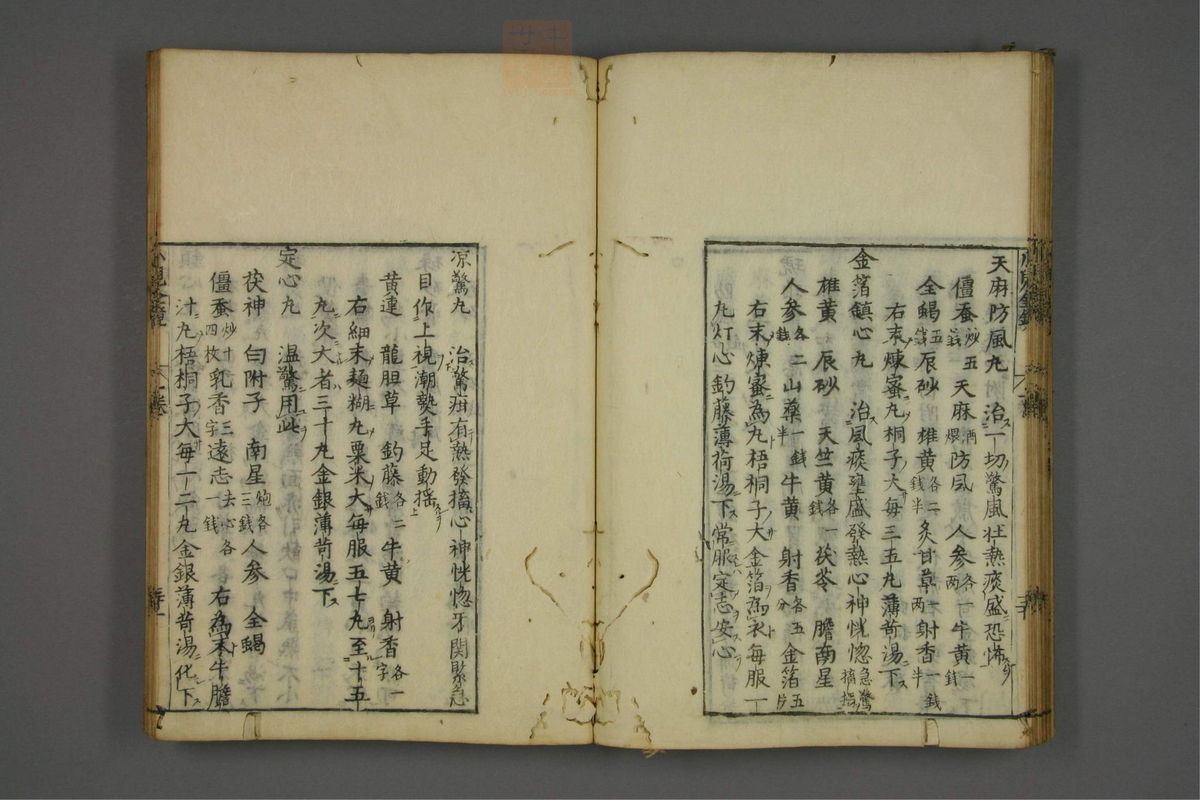 天麻防風丸 治一切驚風壮熱痰盛恐怖
僵蚕炒五錢天麻両煨防風 人参各一両牛黄一錢
全蝎五錢辰砂 雄黄各二錢半炙甘草一両射香一錢半
右末煉蜜丸桐子大毎三五丸薄荷湯下
金箔鎮心丸 治風痰壅盛發熱心神恍惚急驚搐搦
雄黄 辰砂 天竺黄各一錢茯苓 膽南星
人参各二錢山藥一錢半牛黄 射香各五分金箔五片
右末煉蜜為丸梧桐子大金箔為衣毎服一
丸灯心釣藤薄荷湯下常服定志安心
凉驚丸 治驚疳有熱發搐心神恍惚牙関緊急
目作上視潮𤍠手足動揺
黄連 龍胆草 釣藤各二錢牛黄 射香各一字
右細末麺糊丸粟米大毎服五七丸至十五
丸次大者三十丸金銀薄苛湯下
定心丸 温驚用此
茯神 白附子 南星炮各三錢人参 全蝎
僵蚕炒十四枚乳香三字遠志去心各一錢右為末牛膽
汁丸梧桐子大毎一二丸金銀薄苛湯化下